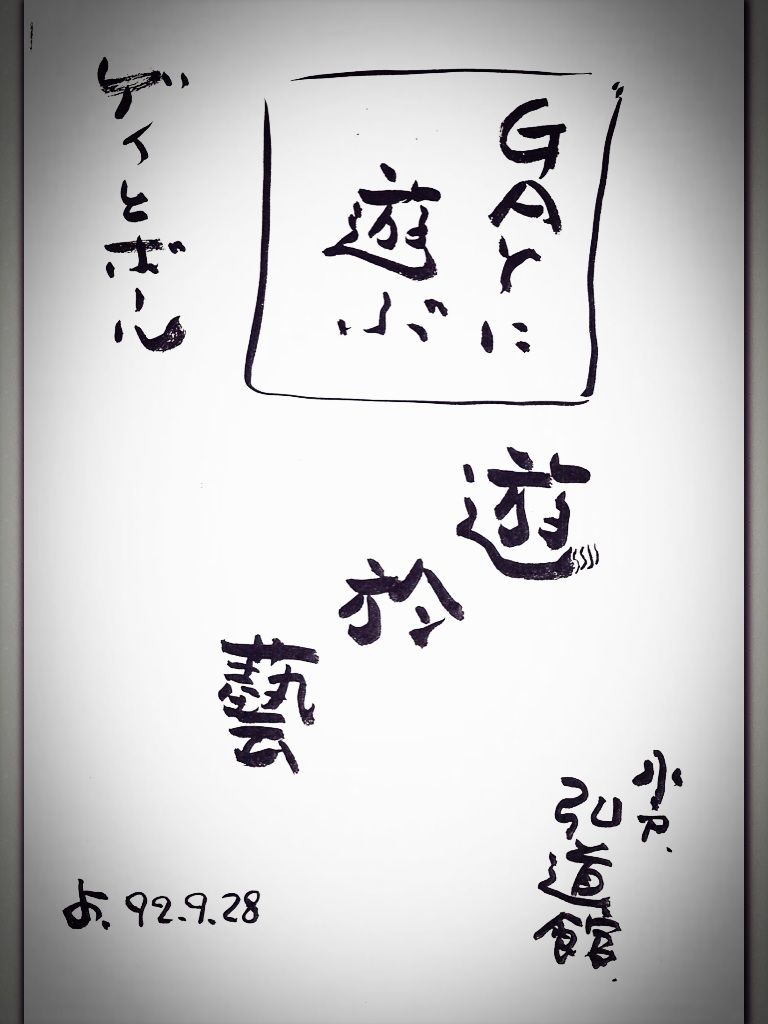 GAYに
遊ぶ
ゲイとボール
遊於藝
水戸.
弘道館.
よ. 92.9.28